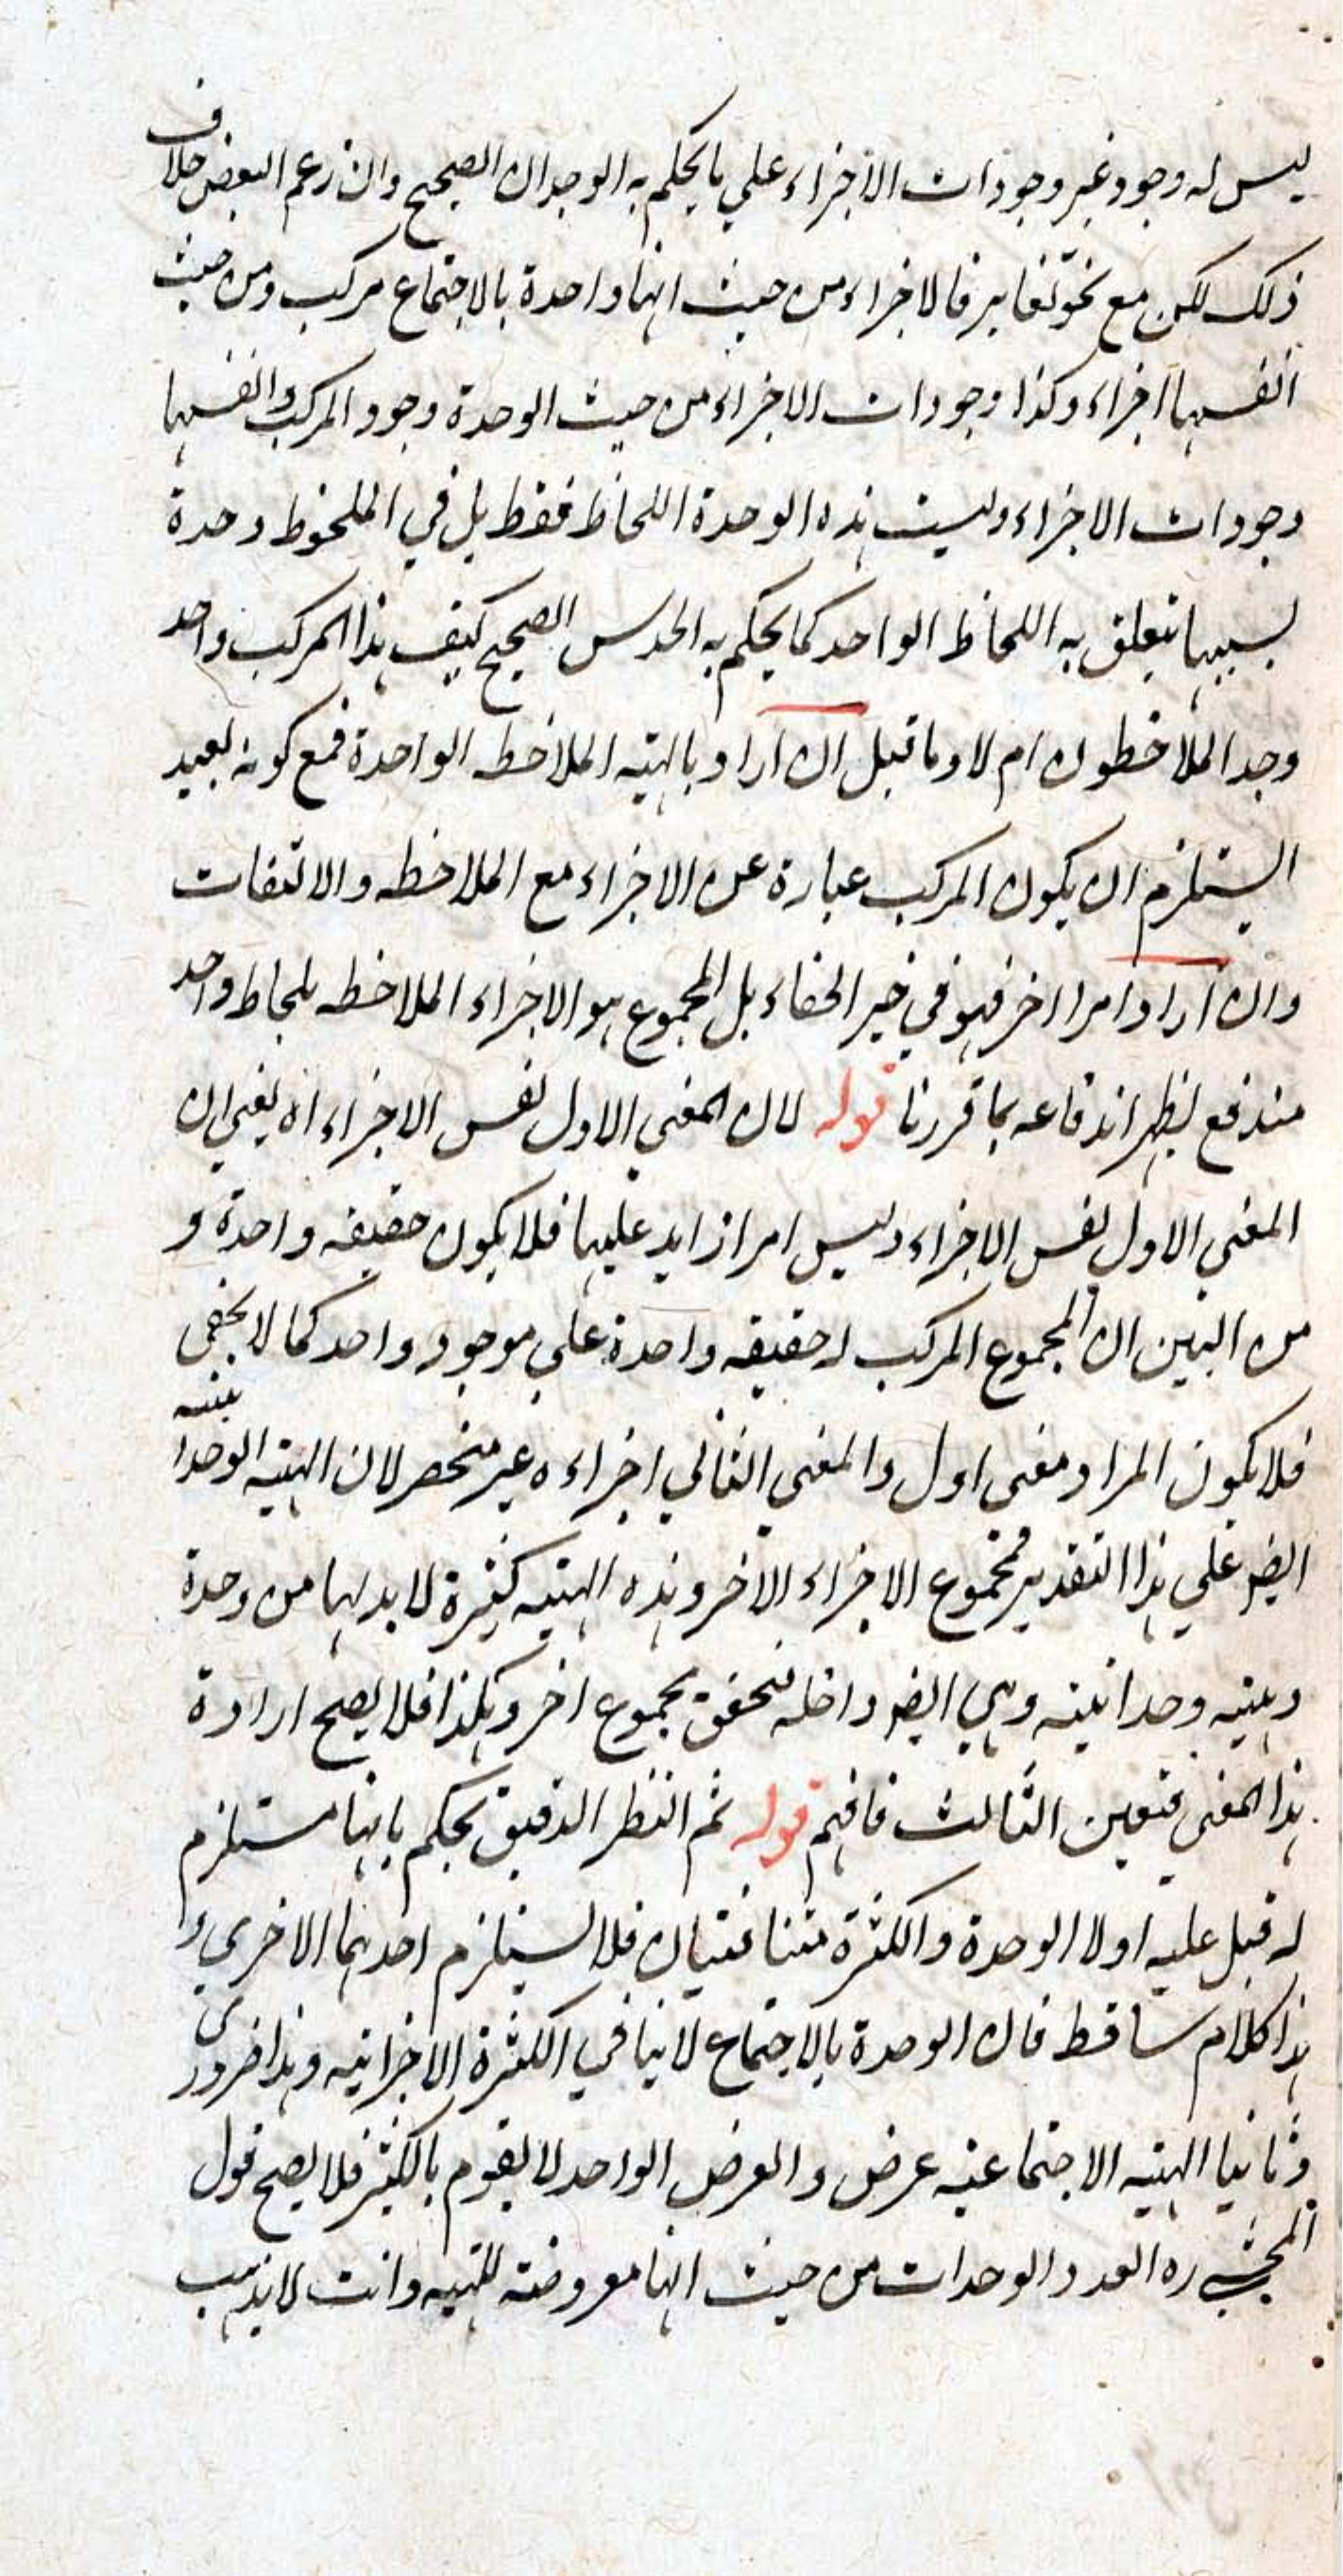 ليس له وجود غير وجودات الاجزاء علي ما يحكم به الوجدان الصحيح وان زعم البعض خلاف
ذلك لكن مع نحو تغاير فالاجزاء من حيث انها واحدة بالاجتماع مركب ومن حيث
انفسها اجزاء وكذا وجودات الاجزاء من حيث الوحدة وجود المركب وانفسها
وجودات الاجزاء وليست هذه الوحدة اللحاظ فقط بل في الملحوظ وحدة
بسببها تتعلق به اللحاظ الواحد كما يحكم به الحدس الصحيح كيف هذا المركب واحد
وجد الملاحظون ام لا وما قيل ان اراد بالهيئه الملاحظه الواحدة فمع كونه بعيد
يستلزم ان يكون المركب عبارة عن الاجزاء مع الملاحظه والالتفات
وان اراد امرا اخر فهو في حيز الخفاء بل المجموع هو الاجزاء الملاحظه بلحاظ واحد
مندفع لظهر اندفاعه بما قررنا قوله لان المعني الاول نفس الاجزاء اه يعني ان
المعني الاول نفس الاجزاء وليس امرا زايد عليها فلا يكون حقيقه واحدة و
من البين ان المجموع المركب له حقيقه واحدة علي موجود واحد كما لا يخفى
فلا يكون المراد معنى اول والمعني الثاني اجزاءه غير منحصر لان الهيئه الوحدانيه
ايضر علي هذا التقدير فمجموع الاجزاء الاخر وهذه الهيئه كثيرة لا بد لها من وحدة
وهيئه وحدانيته وهي ايضر داخله فتحقق مجموع اخر وهكذا فلا يصح ارادة
هذا المعنى فتعين الثالث فافهم قوله ثم النظر الدقيق يحكم بانها مستلزم
له قيل عليه اولا الوحدة والكثرة متنافيتان فلا يستلزم احدهما الاخري و
هذا كلام ساقط فان الوحدة بالاجتماع لا ينافي الكثرة الاجزائيه وهذا ضروري
وثانيا الهيئه الاجتماعيه عرض والعرض الواحد لا يقوم بالكثير فلا يصح قول
المحشي ره العدد الوحدات من حيث انها معروضة للهيئه وانت لا يذهب